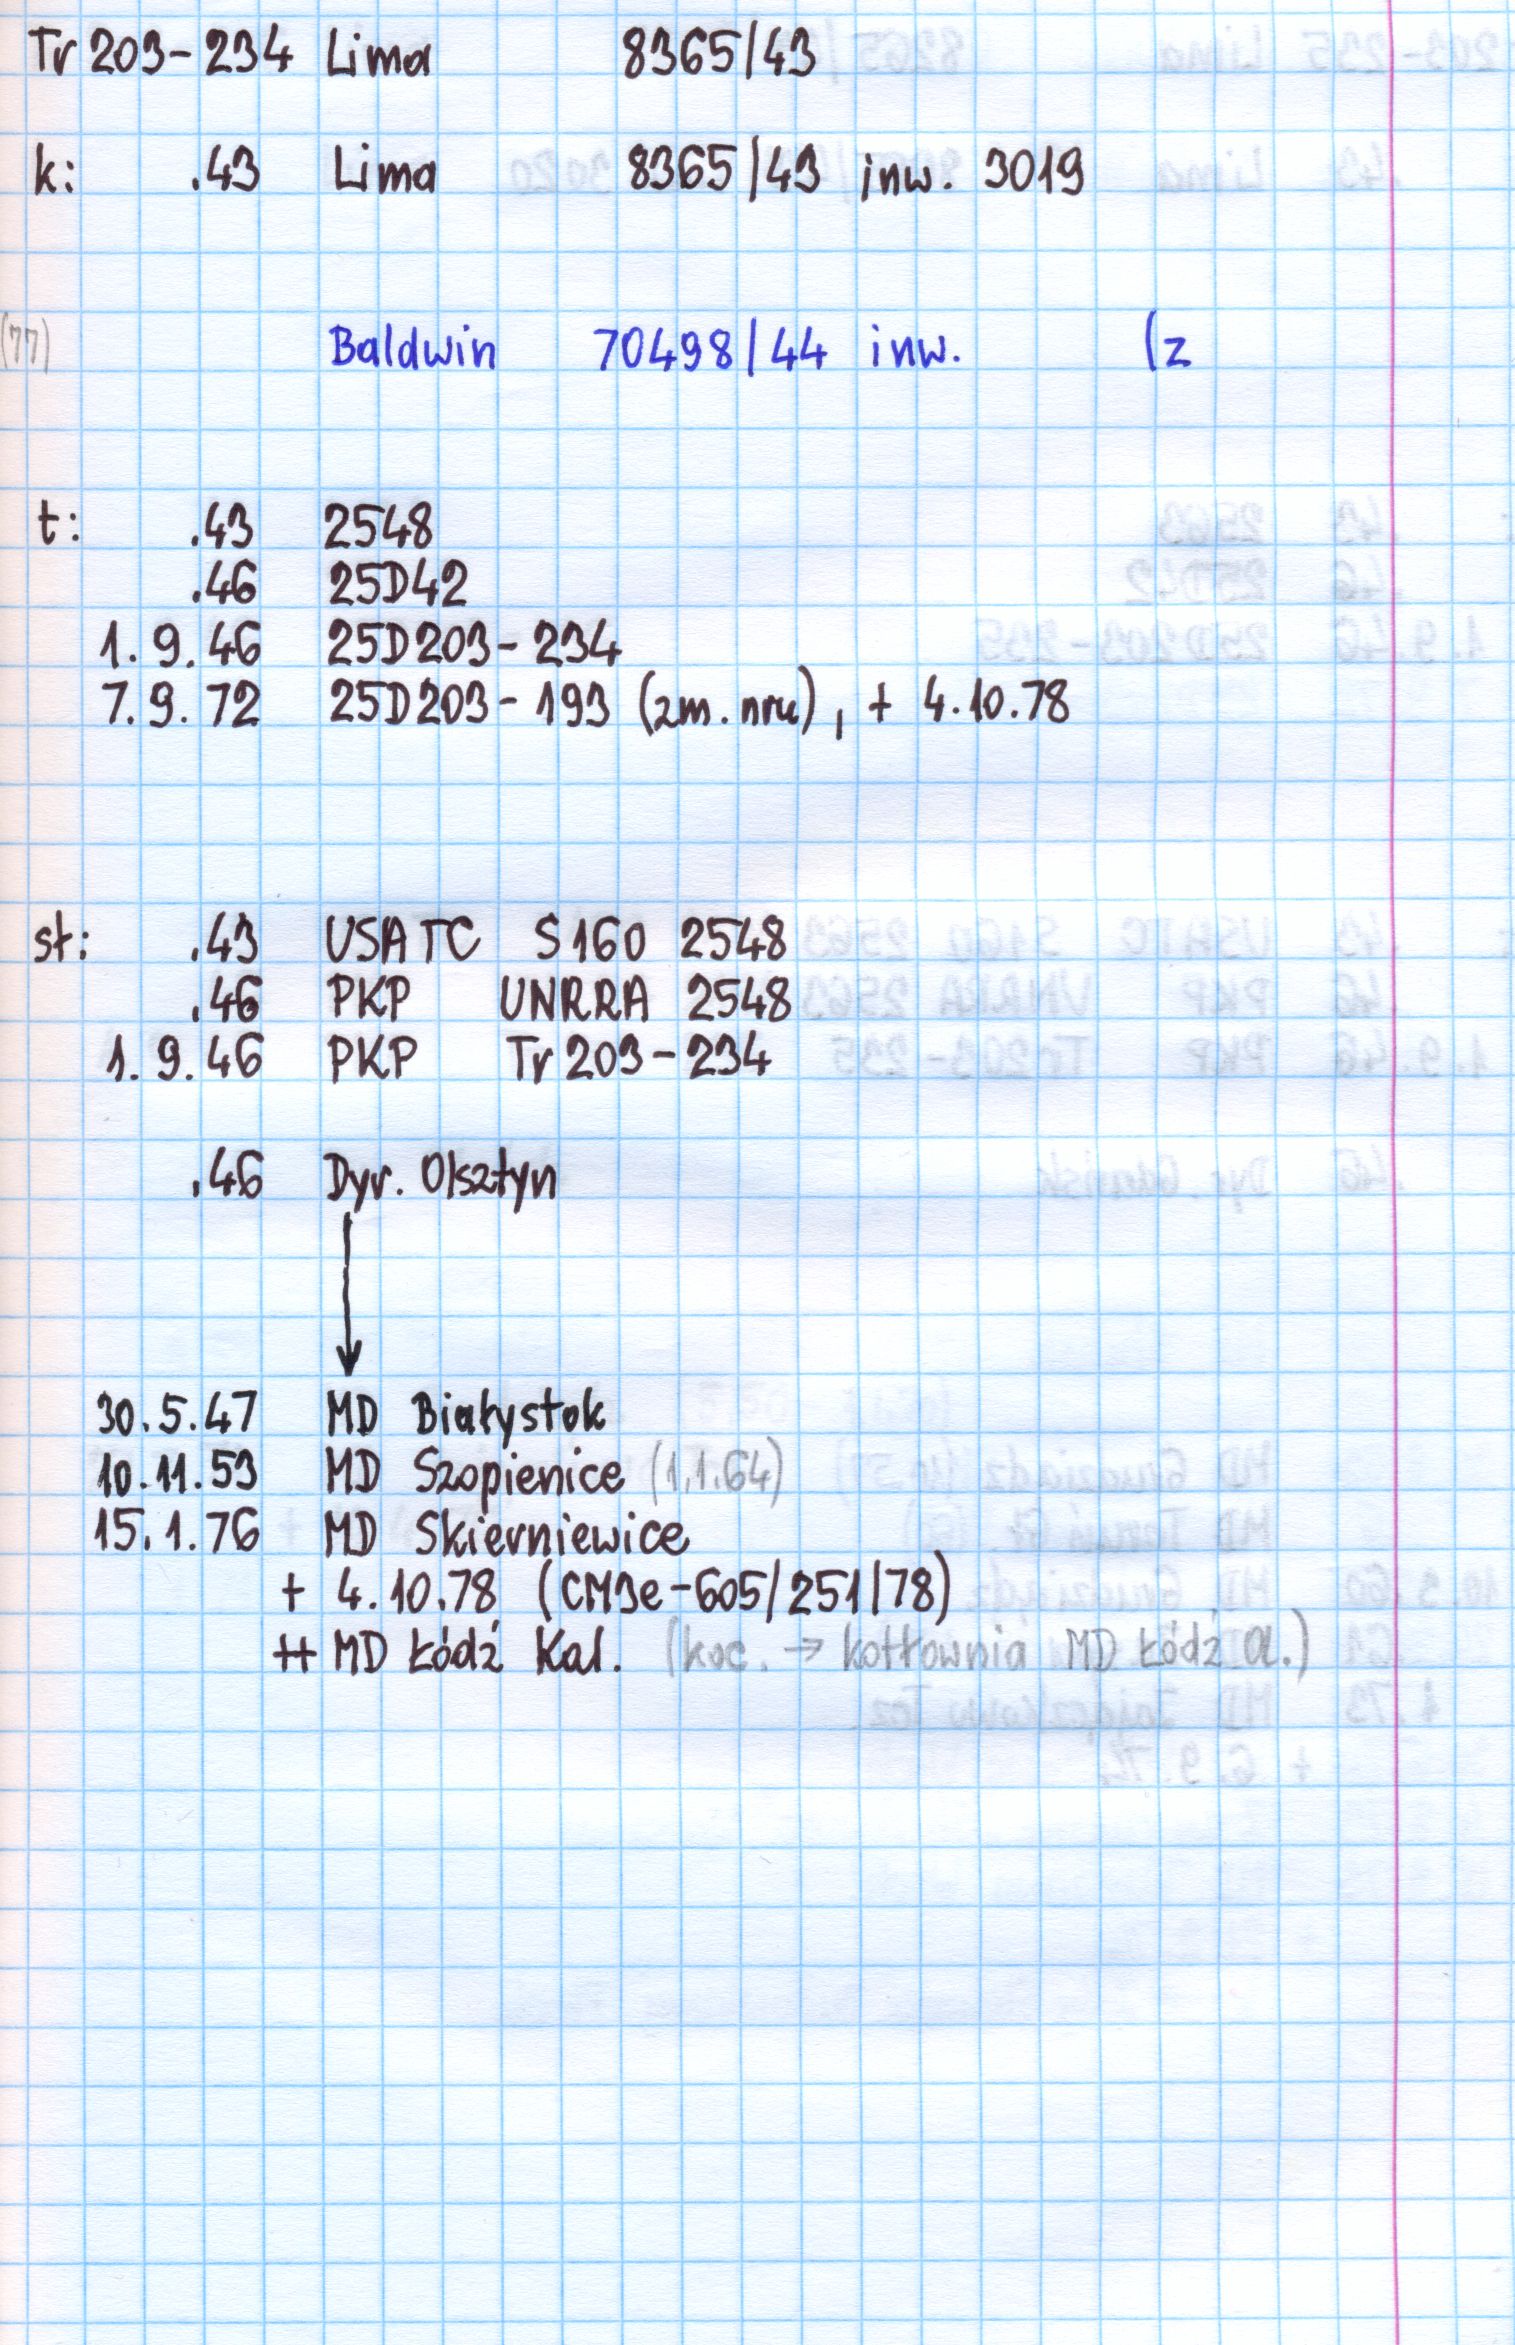 Tr 203-234 Lima 8365/43
k: .43 Lima 8365/43 inw. 3019
(77) Baldwin 70498/44 inw. (z
t: .43 2548
.46 25D42
1.9.46 25D203-234
7.9.72 25D203-193 (zm. nru), + 4.10.78
st: .43 USATC S160 2548
.46 PKP UNRRA 2548
1.9.46 PKP Tr 203-234
.46 Dyr. Olsztyn
30.5.47 MD Białystok
10.11.53 MD Szopienice (1.1.64)
15.1.76 MD Skierniewice
+ 4.10.78 (CM3e-605/251/78)
++ MD Łódź Kal. (koc. → kotłownia MD Łódź a.)